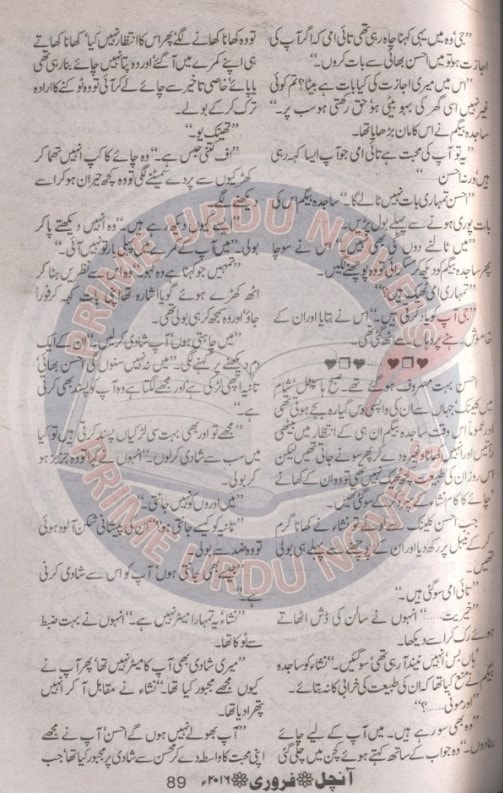 ”جی‘ وہ میں یہی کہنا چاہ رہی تھی تائی امی کہ اگر آپ کی
اجازت ہو تو میں احسن بھائی سے بات کروں۔“
”اس میں میری اجازت کی کیا بات ہے بیٹا؟ تم کوئی
غیر نہیں اسی گھر کی بہو بیٹی ہو‘ حق رکھتی ہو سب پر۔“
ساجدہ بیگم نے اس کا مان بڑھایا تھا۔
”یہ تو آپ کی محبت ہے تائی امی جو آپ ایسا کہہ رہی
ہیں ورنہ احسن......“
”احسن تمہاری بات نہیں ٹالے گا۔“ ساجدہ بیگم اس کی
بات پوری ہونے سے پہلے بول پڑیں۔
”میں ٹالنے دوں گی بھی نہیں۔“ اس نے سوچا
پھر ساجدہ بیگم کو دیکھ کر مسکرائی تو وہ پوچھنے لگیں۔
”تمہاری امی ٹھیک ہیں؟“
”جی آپ کو یاد کرتی ہیں۔“ اس نے بتایا اور ان کے
خاموش رہنے پر وہاں سے اٹھ گئی تھی۔
♥❒♥ ...... ♥❒♥
احسن بہت مصروف ہو گئے تھے۔ صبح ہاسپٹل‘ شام
میں کلینک جہاں سے ان کی واپسی دس گیارہ بجے ہوتی تھی
اور عموماً اس وقت ساجدہ بیگم ان ہی کے انتظار میں بیٹھی
رہتیں اور انہیں کھانا وغیرہ دے کر پھر سونے جاتی تھیں لیکن
اس روز ان کی طبیعت ٹھیک نہیں تھی تو وہ ان کے کھانے
چائے کا کام نشاء کو سونپ کر سو گئی تھیں۔
جب احسن کلینک سے آئے تو نشاء نے کھانا گرم
کر کے ٹیبل پر رکھ دیا اور ان کے پوچھنے سے پہلے ہی بولی
تھیں۔
”تائی امی سو گئی ہیں۔“
”خیریت......“ انہوں نے سالن کی ڈش اٹھاتے
ہوئے رک کر اسے دیکھا۔
”ہاں بس‘ انہیں نیند آ رہی تھی‘ سو گئیں۔“ نشاء کو ساجدہ
بیگم نے منع کیا تھا کہ ان کی طبیعت کی خرابی کا نہ بتائے۔
”اور مونی......؟“
”وہ بھی سو رہے ہیں۔ میں آپ کے لیے چائے
بنا دوں۔“ وہ جواب کے ساتھ کہتے ہوئے کچن میں چلی گئی
تو وہ کھانا کھانے لگے‘ پھر اس کا انتظار نہیں کیا‘ کھانا کھاتے
ہی اپنے کمرے میں آ گئے اور وہ پتا نہیں چائے بنا رہی تھی
یا پائے‘ خاصی تاخیر سے لے کر آئی تو وہ ٹوکنے کا ارادہ
ترک کر کے بولے۔
”تھینک یو۔“
”اف کتنی حبس ہے۔“ وہ چائے کا کپ انہیں تھما کر
کھڑکیوں سے پردے سمیٹنے لگی تو وہ کچھ حیران ہو کر اسے
دیکھنے لگے۔
”ایسے کیوں دیکھ رہے ہیں۔“ وہ انہیں دیکھتے پا کر
بولی۔ ”میں آپ کے کمرے میں پہلی بار تو نہیں آئی۔“
”تمہیں جو کہنا ہے وہ کہو۔“ وہ اس سے نظریں ہٹا کر
اٹھ کھڑے ہوئے گویا اشارہ تھا اپنی بات کہہ کر فوراً
جاؤ اور وہ سمجھ کر ہی بولی تھی۔
”میں چاہتی ہوں آپ شادی کر لیں۔“ ان کے ایک
دم دیکھنے پر کہنے لگی۔ ”میں نہ نہیں سنوں گی احسن بھائی‘
تانیہ اچھی لڑکی ہے اور مجھے لگتا ہے وہ آپ کو پسند بھی کرتی
ہے۔“
”مجھے تو اور بھی بہت سی لڑکیاں پسند کرتی ہیں‘ تو کیا
میں سب سے شادی کر لوں۔“ انہوں نے کہا تو وہ جز بز ہو
کر بولی۔
”میں اوروں کو نہیں جانتی۔“
”تانیہ کو کیسے جانتی ہو؟“ ان کی پیشانی شکن آلود ہوئی
تو وہ ضد سے بولی۔
”جیسے بھی جانتی ہوں‘ آپ کو اس سے شادی کرنی
ہے۔“
”نشاء! یہ تمہارا میٹر نہیں ہے۔“ انہوں نے بہت ضبط
سے ٹوکا تھا۔
”میری شادی بھی آپ کا میٹر نہیں تھا‘ پھر آپ نے
کیوں مجھے مجبور کیا تھا۔“ نشاء نے مقابل آ کر انہیں
پھر ا دیا تھا۔
”آپ بھولے نہیں ہوں گے احسن! آپ نے مجھے
اپنی محبت کا واسطہ دے کر محسن سے شادی پر مجبور کیا تھا‘ جب
آنچل ❁ فروری ❁ ۲۰۱۶ء 89
PRIME URDU NOVELS
PRIME URDU NOVELS